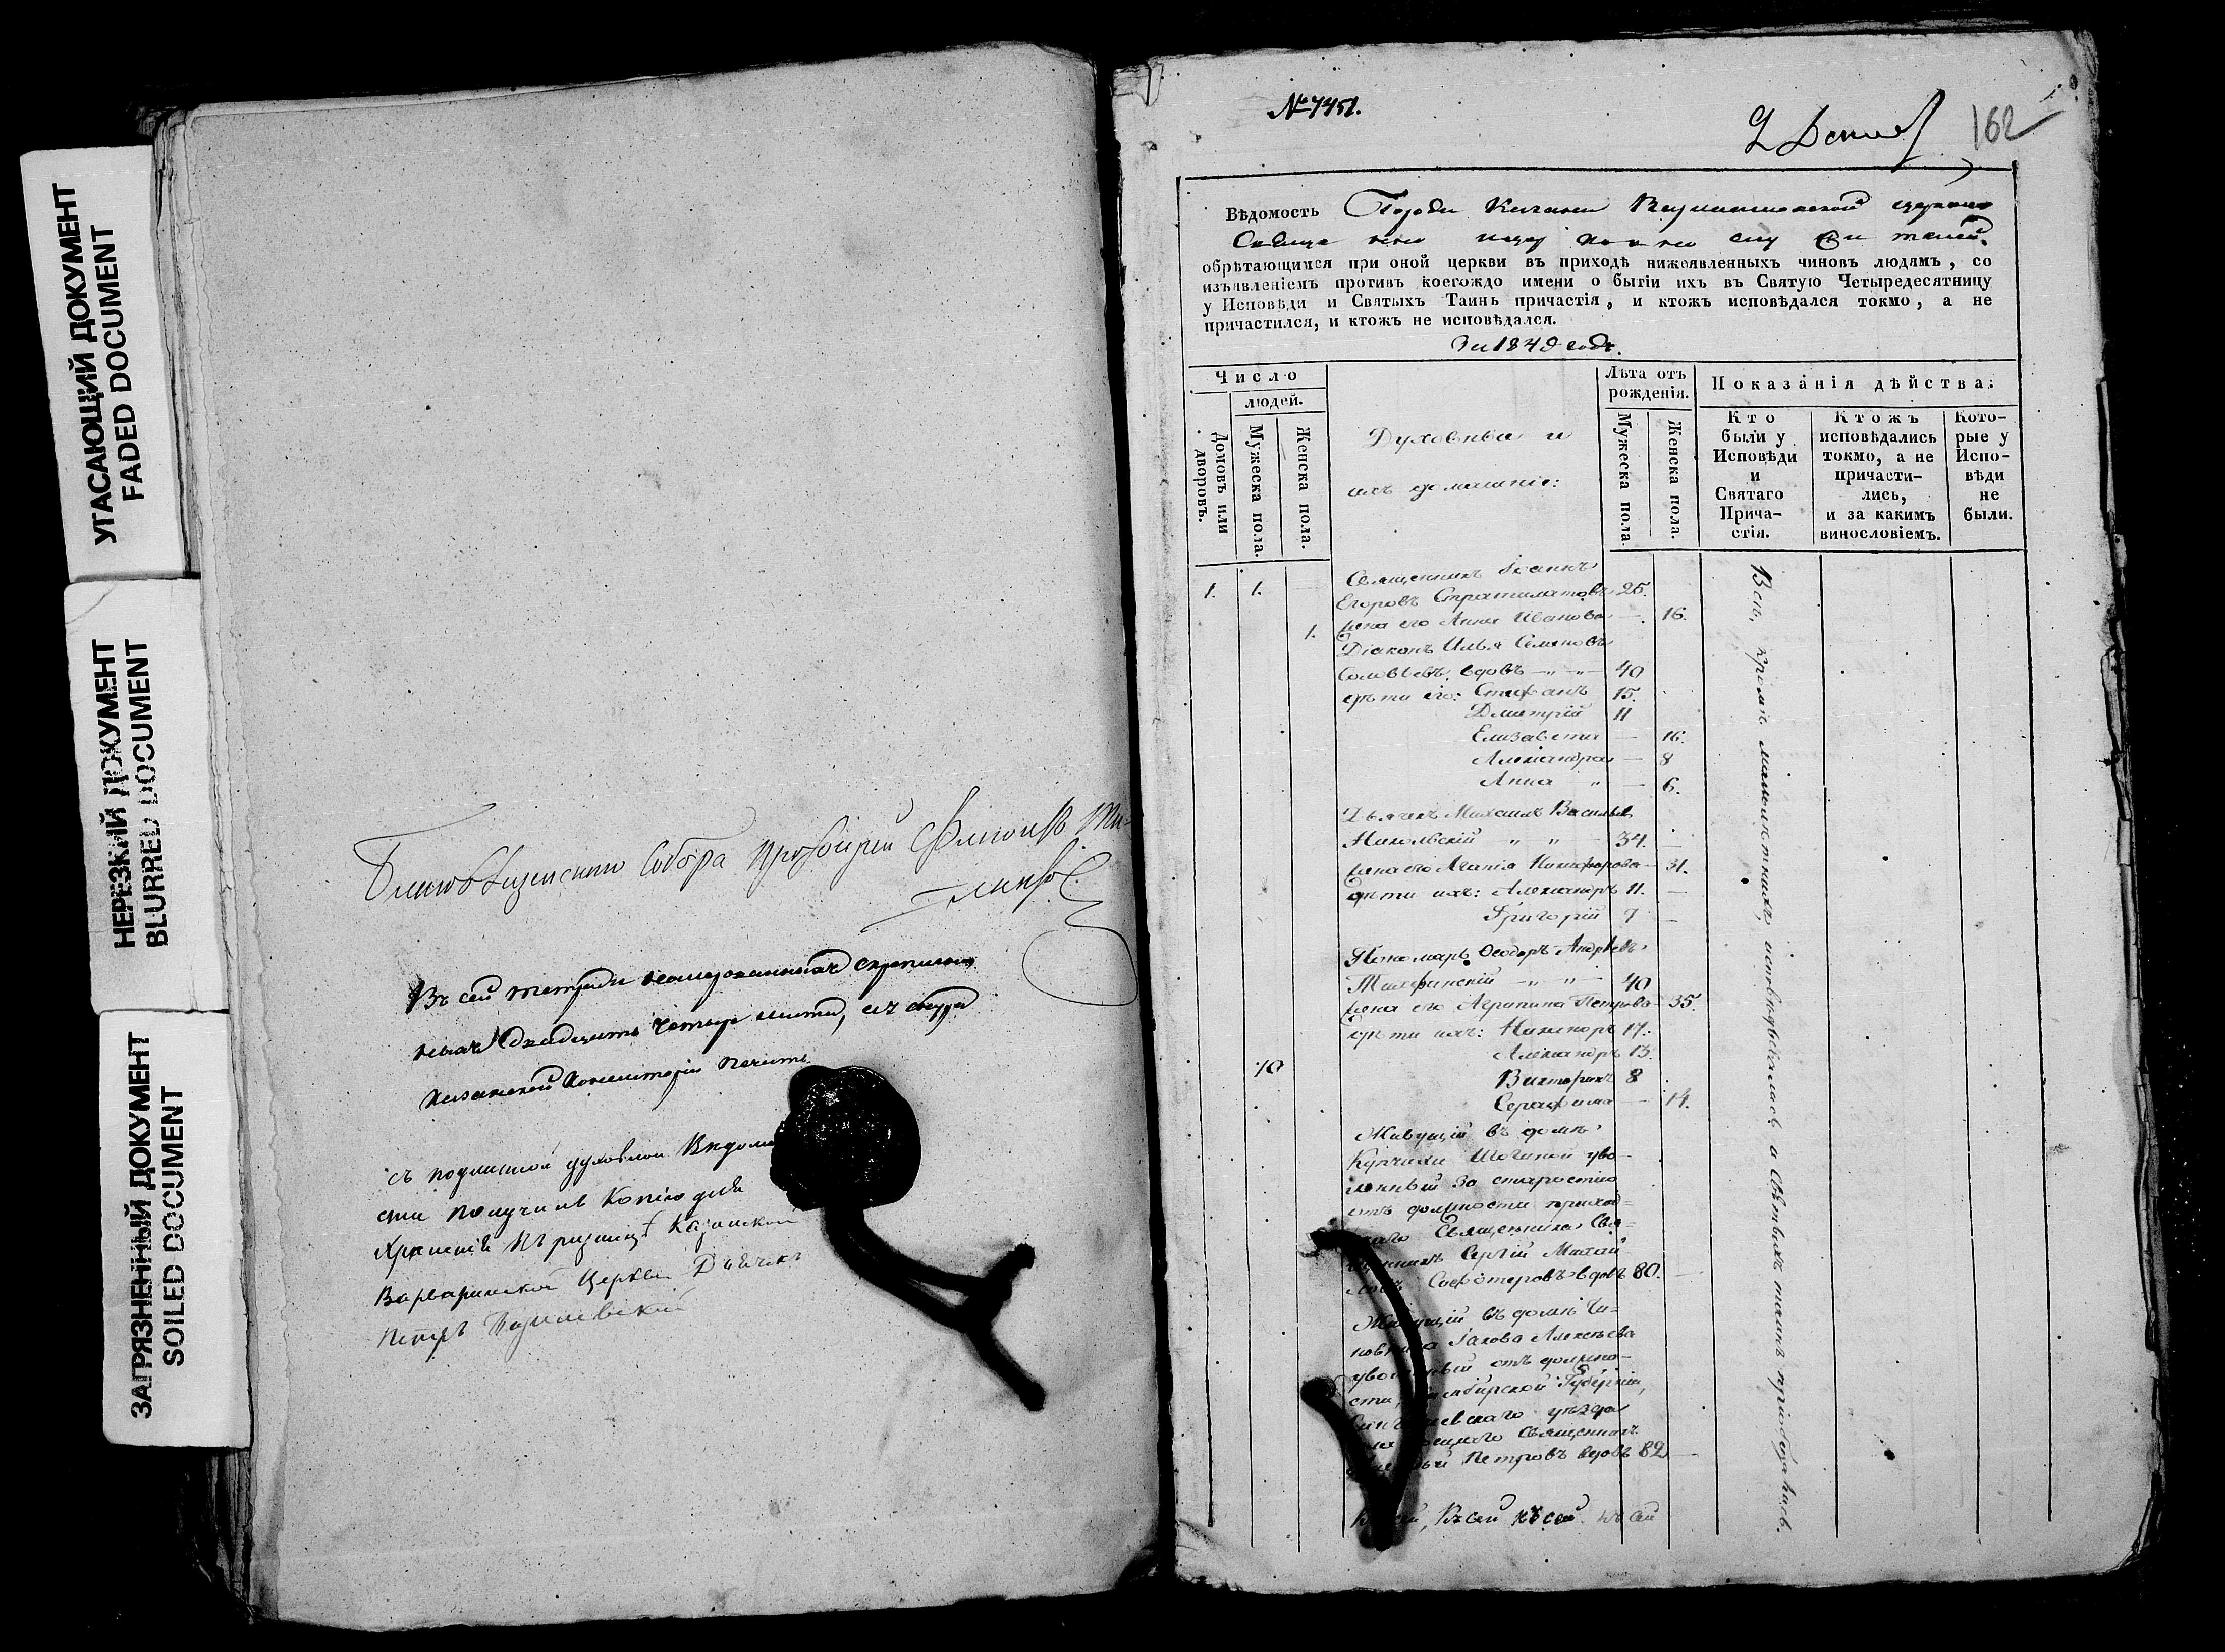 УГАСАЮЩИЙ ДОКУМЕНТ
FADED DOCUMENT
НЕРЕЗКИЙ ДОКУМЕНТ
BLURRED DOCUMENT
ЗАГРЯЗНЕННЫЙ ДОКУМЕНТ
SOILED DOCUMENT
Благовѣщенскаго Собора Протоіерей
Въ сей тетради
двадцать четыре листа,
Казанской Консисторіи печать.
съ подлинной духовной Вѣдомо
сти получилъ Копію для
храненія въ ризницѣ Казанской
Варваринской Церкви Дьячекъ
Петръ
№ 7451.
162
Вѣдомость Города Казани церкви
обрѣтающимся при оной церкви въ приходѣ нижеявленныхъ чиновъ людямъ, со
изъявленіемъ противъ коегождо имени о бытіи ихъ въ Святую Четыредесятницу
у Исповѣди и Святыхъ Таинъ причастія, и ктожъ исповѣдался токмо, а не
причастился, и ктожъ не исповѣдался.
За 1849 годъ.
Число
людей.
Домовъ или дворовъ.
Мужеска пола.
Женска пола.
Духовныя и
ихъ домашніе:
Лѣта отъ рожденія.
Мужеска пола.
Женска пола.
Показанія дѣйства:
Кто были у Исповѣди и Святаго Прича- стія.
Ктожъ исповѣдались токмо, а не причасти- лись, и за какимъ винословіемъ.
Кото- рые у Испо- вѣди не были.
1. 1. Священникъ Іоаннъ
Егоровъ Стратилатовъ 25.
1. жена его Анна Иванова — 16.
Діаконъ Илья Семеновъ
Соловьевъ, вдовъ 40
дѣти его: Стефанъ 15.
Дмитрій 11
Елизавета — 16.
Александра — 8
Анна — 6.
Дьячекъ Михаилъ Васильевъ
Никольскій 34. —
жена его Агапія Никифорова — 31.
дѣти ихъ: Александръ 11. —
Григорій 7 —
Пономарь Ѳеодоръ Андреевъ
40
жена его Агрипина Петрова 35.
дѣти ихъ: Никаноръ 17.
Александръ 13.
10 Викторинъ 8
Серафима — 14.
Живущій въ домѣ
Купчихи уво-
ленный за старостію
отъ должности приход-
скаго Священника Свя-
щенникъ Сергій Михай
ловъ вдовъ 80. —
Живущій въ домѣ Чи-
новника Іакова Алексѣева
уволенный отъ должно-
сти, Симбирской Губерніи,
уѣзда
Священникъ
Петровъ вдовъ 82 —
Къ сей, Къ сей къ сей къ сей
Всѣ, кромѣ малолѣтнихъ, исповѣдывались и Святыхъ таинъ пріобщались.